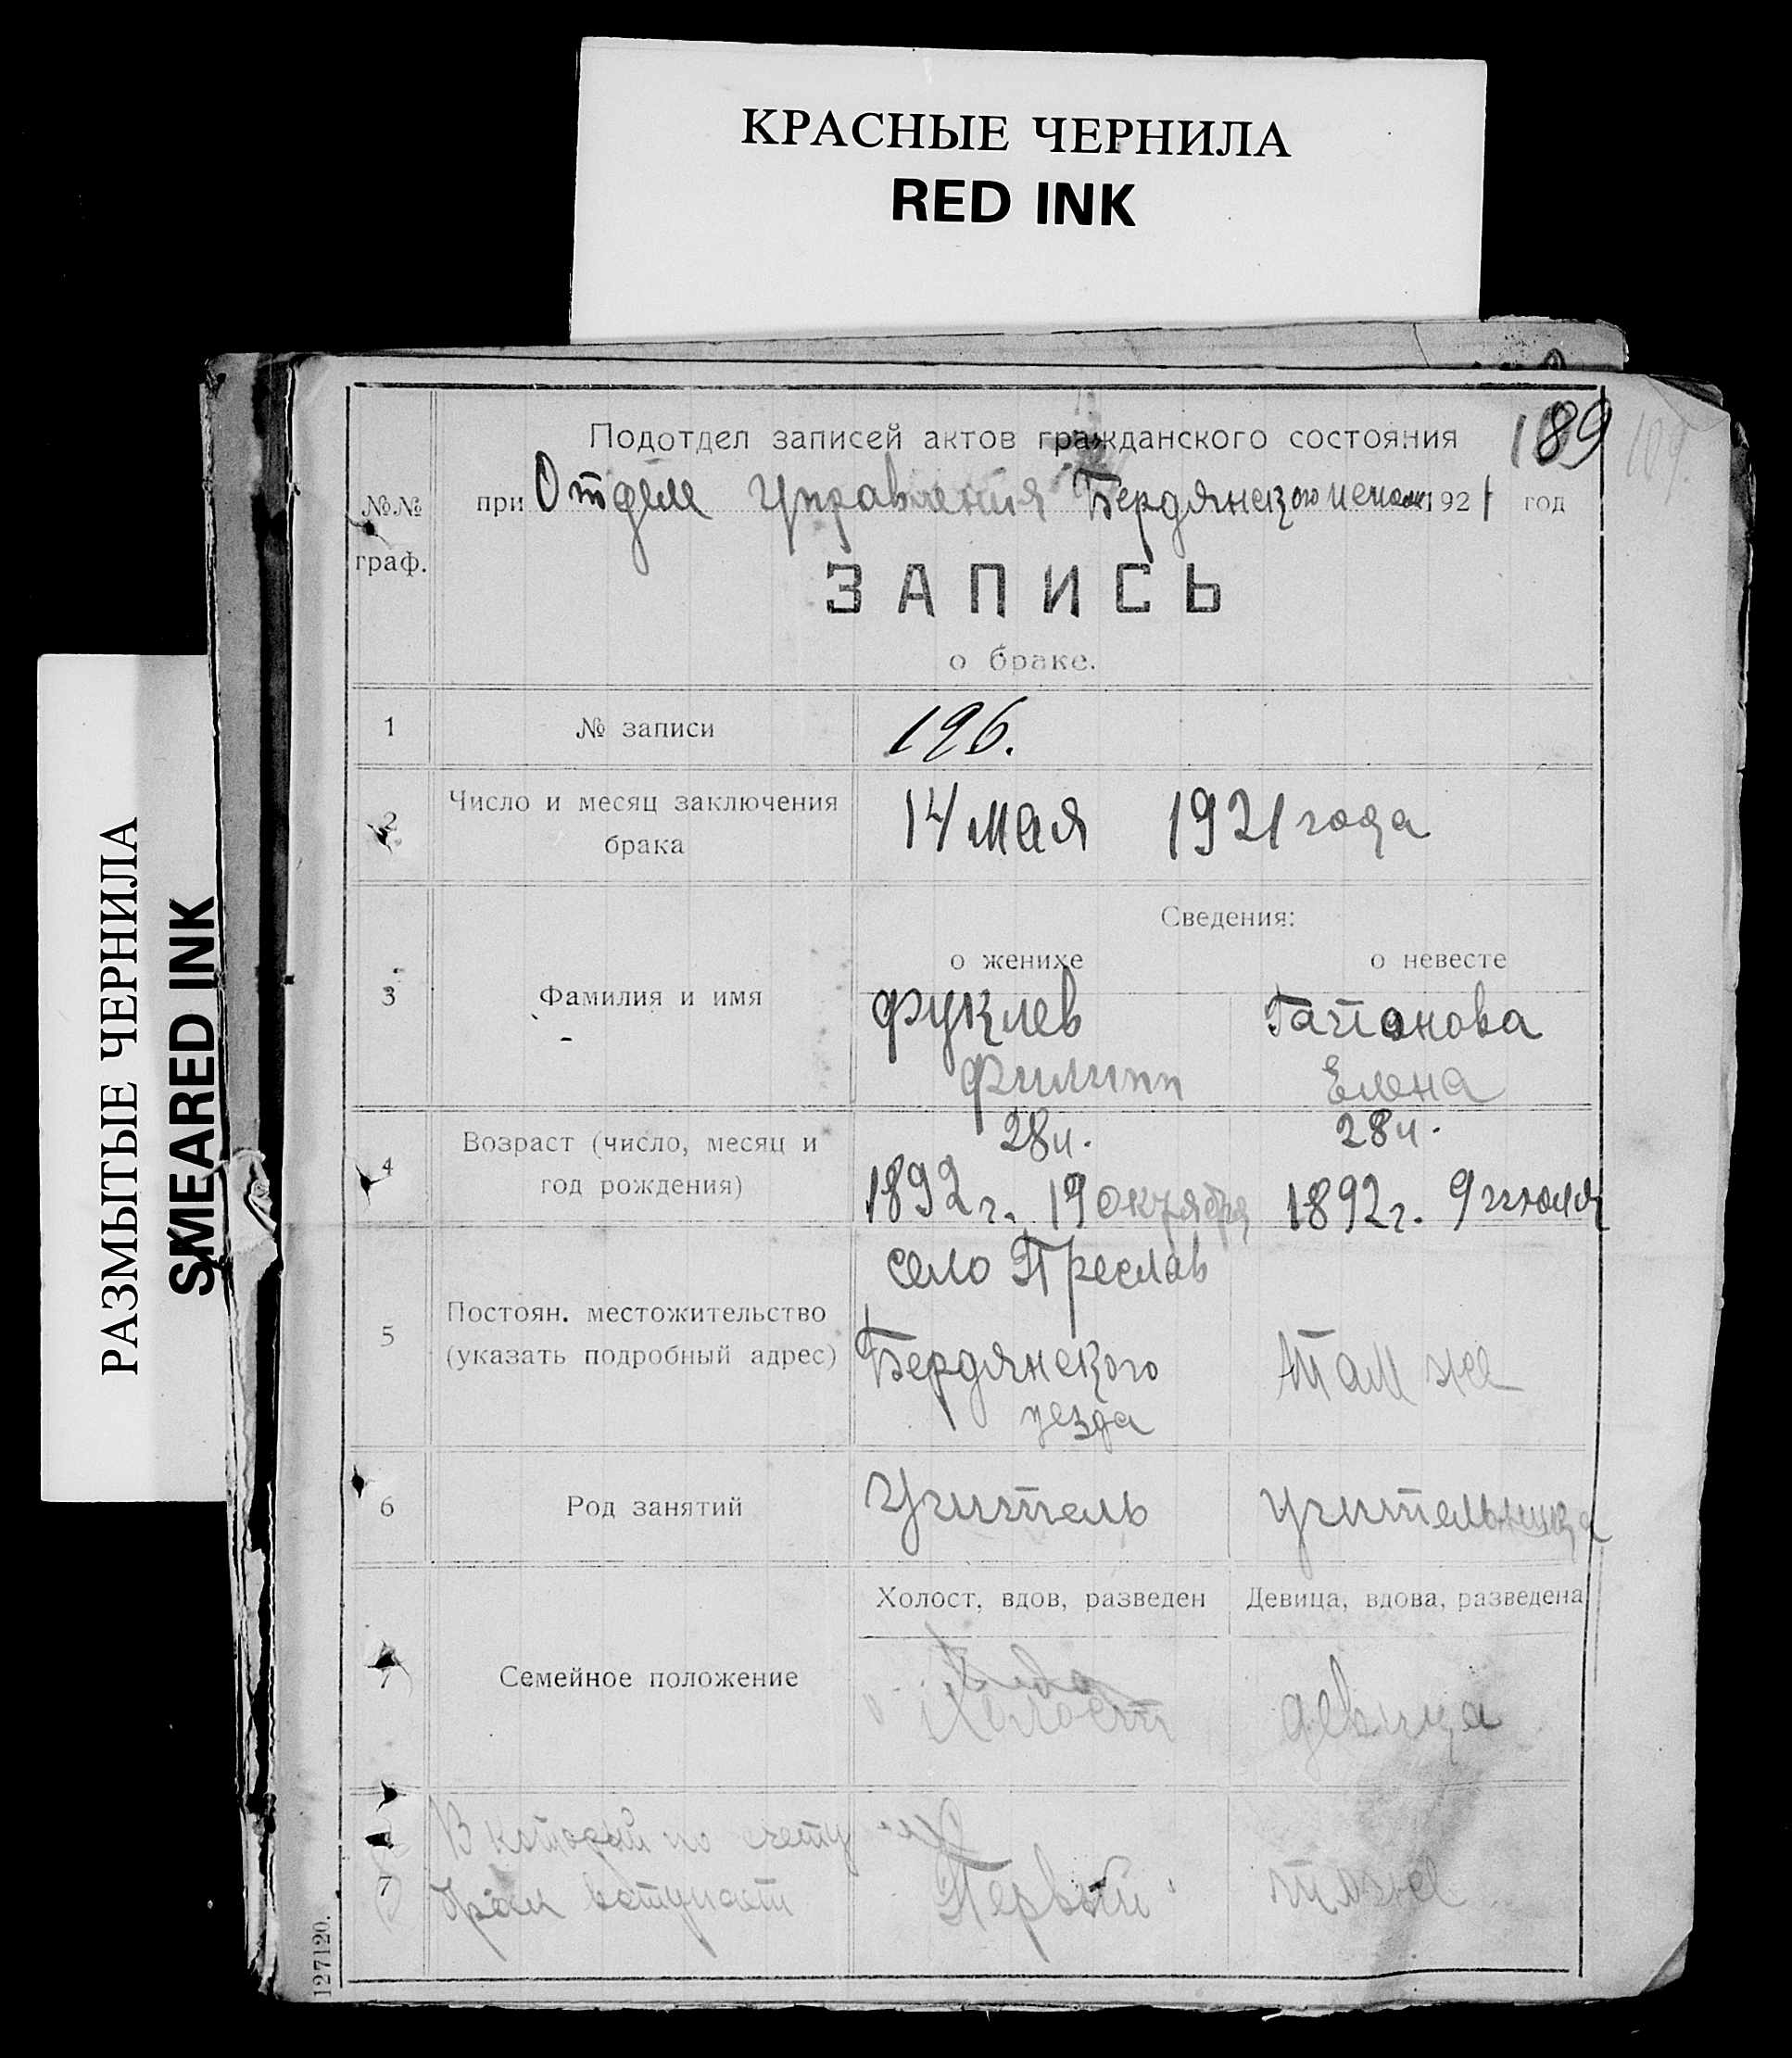 КРАСНЫЕ ЧЕРНИЛА
RED INK
РАЗМЫТЫЕ ЧЕРНИЛА
SMEARED INK
189
Подотдел записей актов гражданского состояния
№№ граф.
при Отделе Управления Бердянского 1921 год
ЗАПИСЬ
о браке.
1 № записи 196.
2 Число и месяц заключения
брака
14 мая 1921 года
Сведения:
о женихе о невесте
3 Фамилия и имя
Фуклев Гайтанова
Филипп Елена
4 Возраст (число, месяц и
год рождения)
28 л. 28 л.
1892 г. 19 октября 1892 г. 9 июля
5 Постоян. местожительство
(указать подробный адрес)
село Преслав
Бердянского там же
уезда
6 Род занятий Учитель учительница
Холост, вдов, разведен Девица, вдова, разведена
7 Семейное положение
Холост девица
7 В который по счету
брак вступает
Первый тоже
127120.